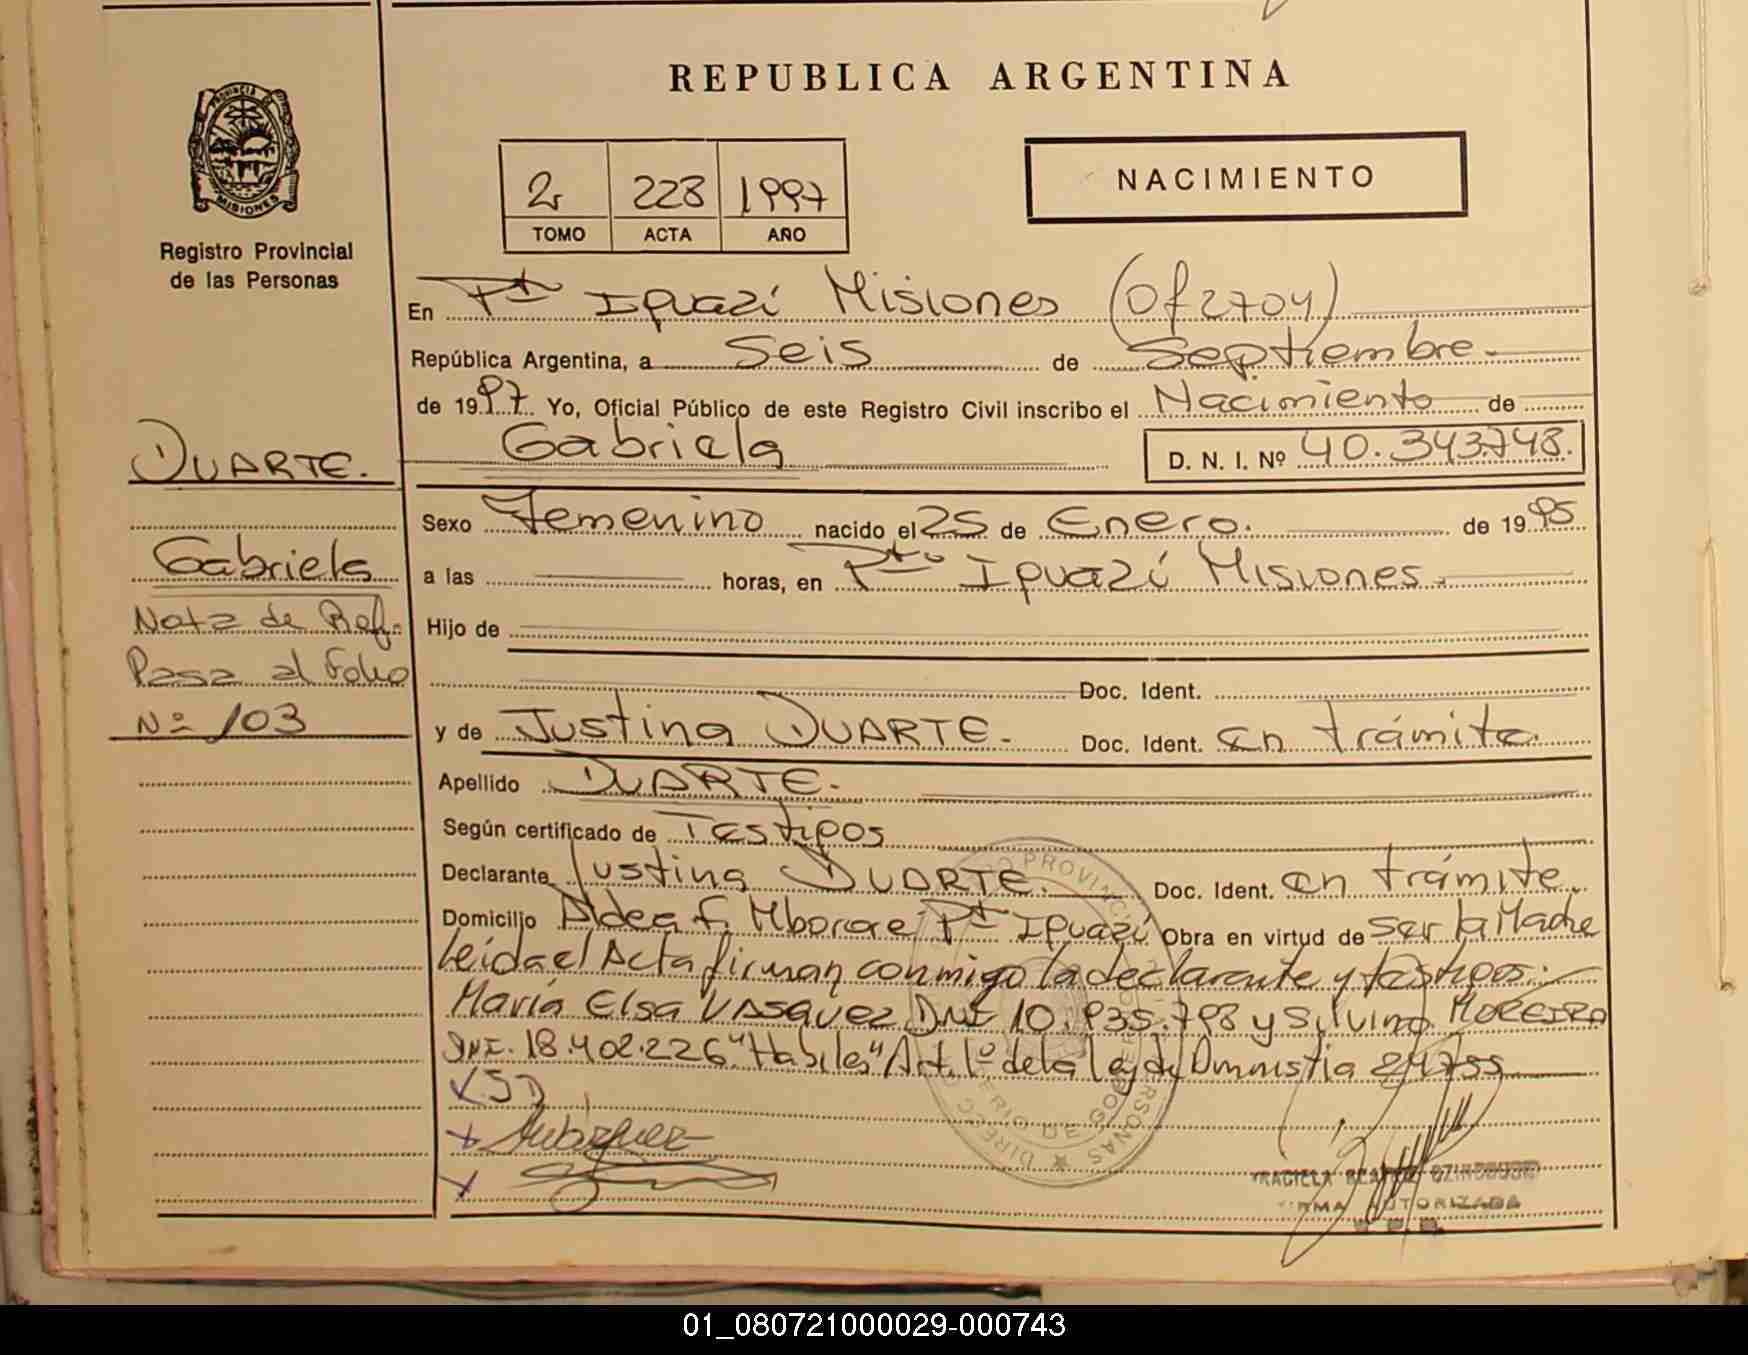 REPUBLICA ARGENTINA
PROVINCIA DE MISIONES
Registro Provincial
de las Personas
2 228 1997
TOMO ACTA AÑO
NACIMIENTO
En Pto Iguazú Misiones (Of 2704)
República Argentina, a Seis de Septiembre
de 1997 Yo, Oficial Público de este Registro Civil inscribo el Nacimiento de
Gabriela D. N. I. Nº 40.343.748.
DUARTE.
Gabriela
Nota de Ref.
Pasa al Folio
Nº 103
Sexo Femenino nacido el 25 de Enero. de 1995
a las horas, en Pto Iguazú Misiones.
Hijo de
Doc. Ident.
y de Justina DUARTE. Doc. Ident. en trámite.
Apellido DUARTE.
Según certificado de Testigos
Declarante Justina DUARTE. Doc. Ident. en trámite.
Domicilio Aldea F. Mborore Pto Iguazú Obra en virtud de ser la Madre
Leida el Acta firman conmigo la declarante y testigos:
María Elsa VASQUEZ DNI 10.935.798 y Silvino MOREIRA
DNI. 18.402.226 "Habiles" Art. 1º de la ley de Amnistia 24755
FIRMA AUTORIZADA
01_080721000029-000743